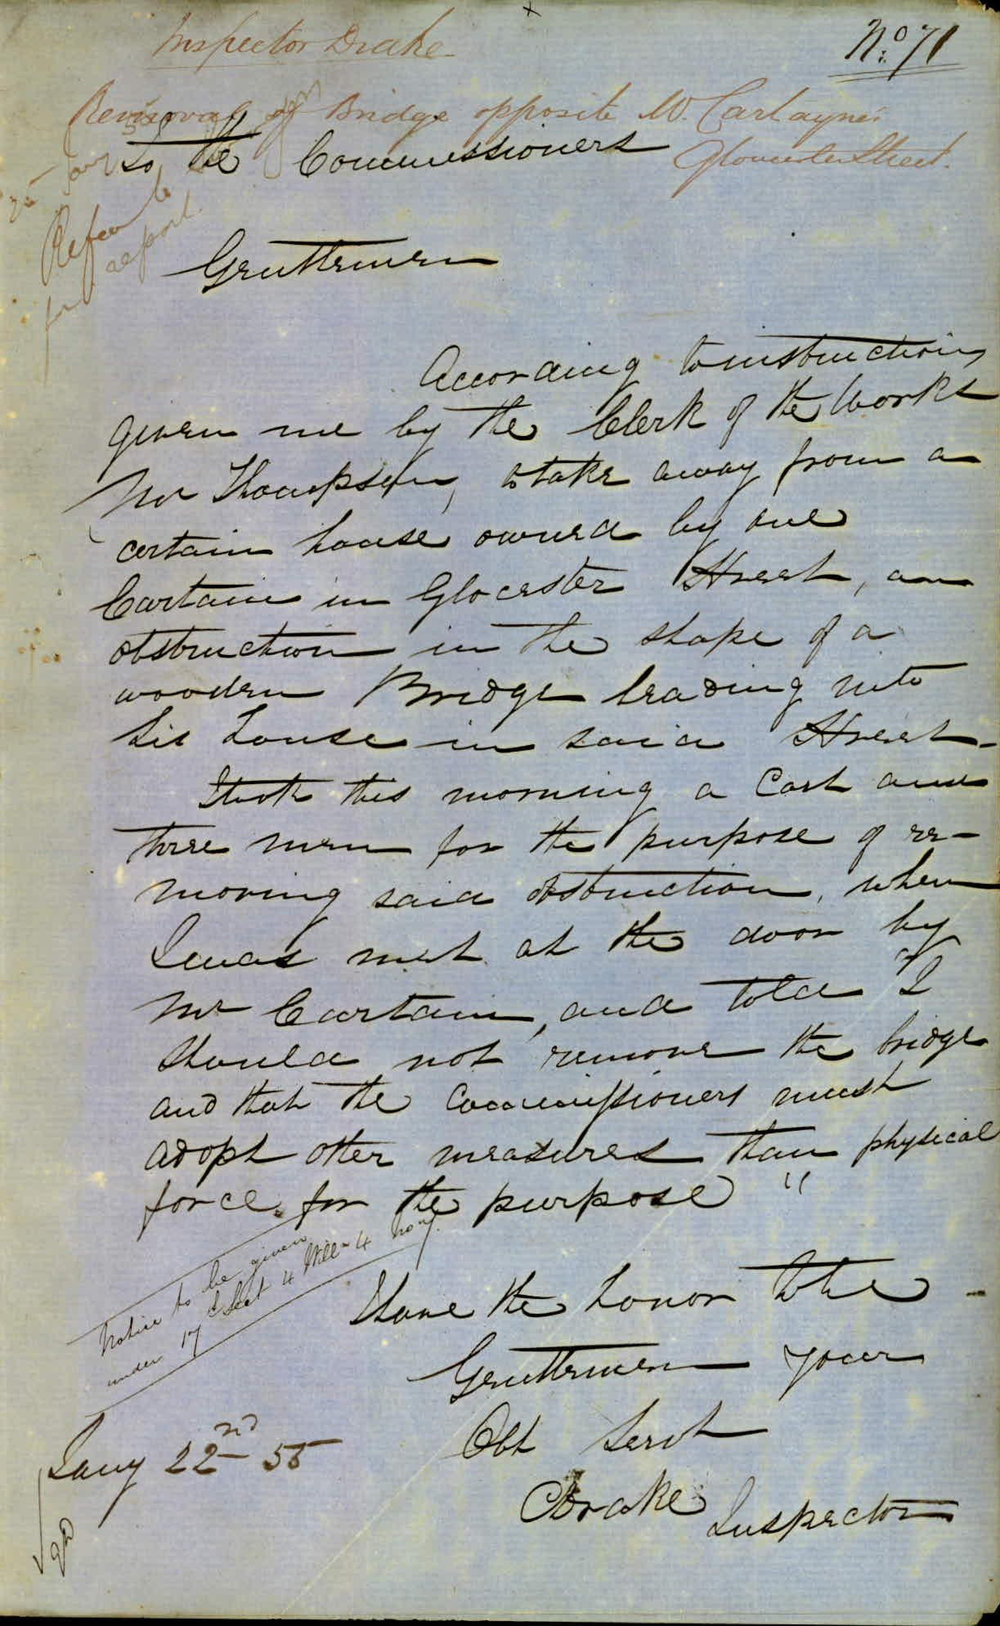 Inspector Drake
No. 71
Removal of Bridge opposite Mr. Cartayne's
Gloucester Street.
To the Commissioners
Refer to
for report.
Gentlemen
According to instructions
given me by the Clerk of the Works
Mr Thompson, to take away from a
certain house owned by one
Cartain in Glocester Street, an
obstruction in the shape of a
wooden Bridge leading into
his house in said Street -
I took this morning a Cart and
three men for the purpose of re-
moving said obstruction, when
I was met at the door by
Mr Cartain, and told "I
should not remove the bridge
and that the Commissioners must
adopt other measures than physical
force for the purpose"
Notice to be given
under 17 Sect 4 Will 4
I have the honor to be
Gentlemen your
Obt Servt
C Drake Inspector
Jany 22nd 55